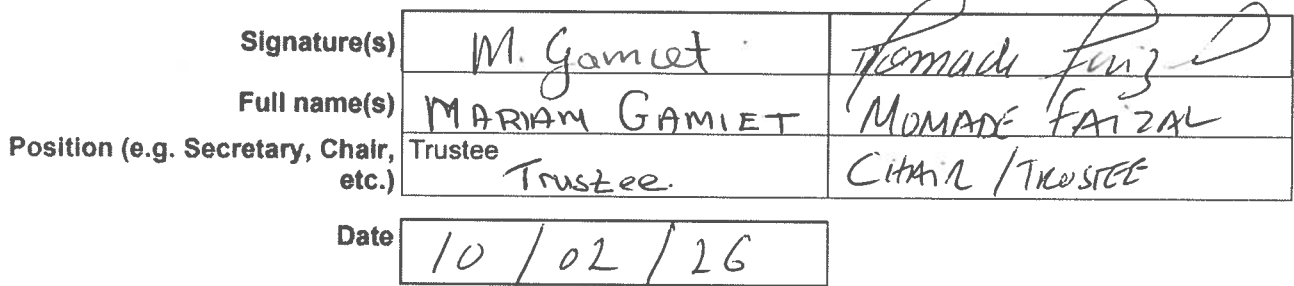 Signature(s) M. Gamiet Momade Faizal
Full name(s) MARIAM GAMIET MOMADE FAIZAL
Position (e.g. Secretary, Chair, Trustee
etc.) Trustee. CHAIR / TRUSTEE
Date 10 / 02 / 26